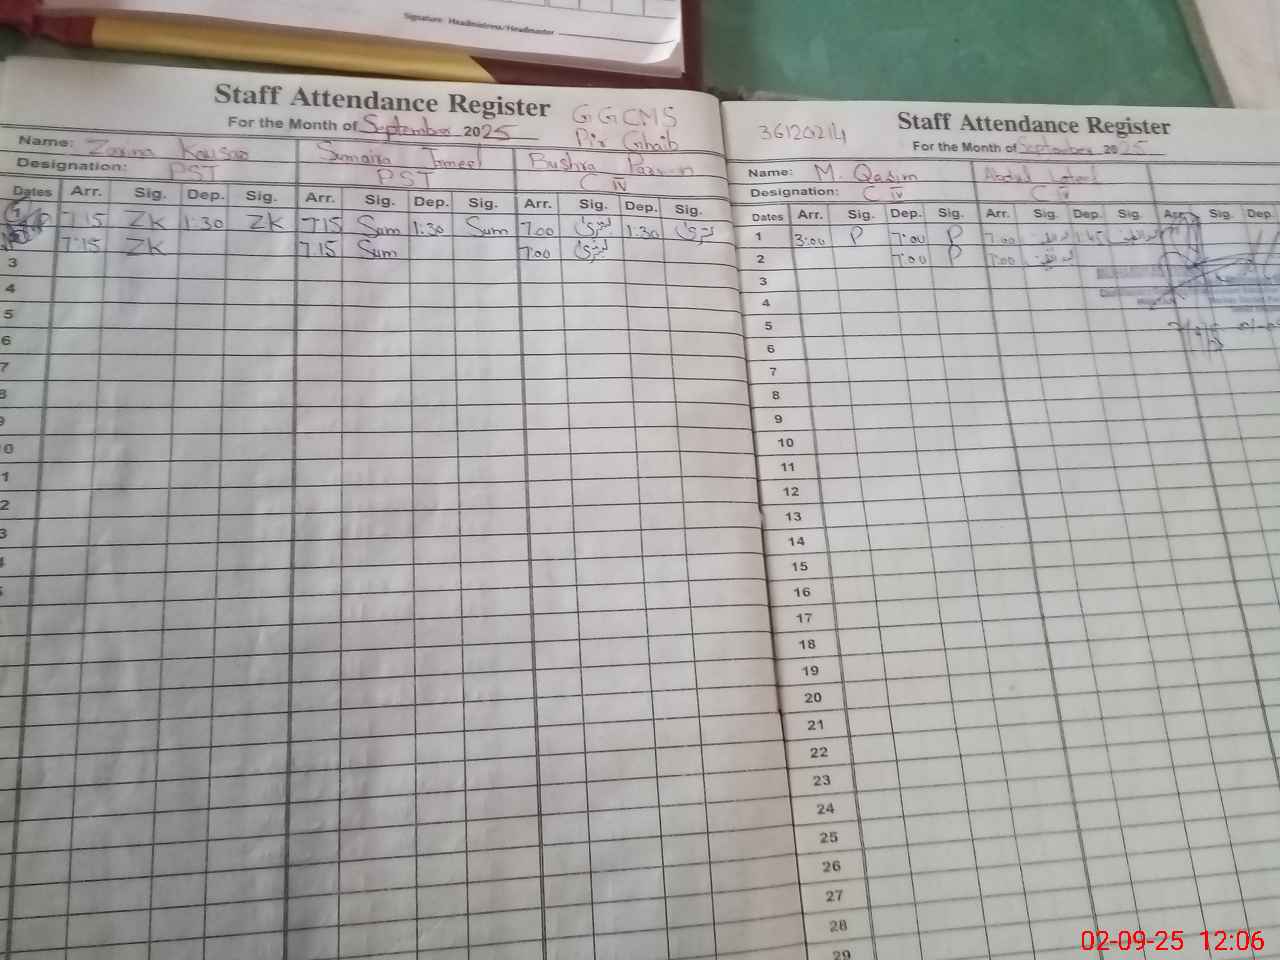 Signature: Headmistress/Headmaster
Staff Attendance Register
GGCMS
For the Month of September 2025
Pir Ghaib
Name: Zarina Kousar Sumaira Jameel Bushra Parveen
Designation: PST PST C IV
Dates Arr. Sig. Dep. Sig. Arr. Sig. Dep. Sig. Arr. Sig. Dep. Sig.
7:15 ZK 1:30 ZK 7:15 Sum 1:30 Sum 7:00 بشریٰ 1:30 بشریٰ
7:15 ZK 7:15 Sum 7:00 بشریٰ
3
4
5
6
7
8
9
0
1
2
3
4
5
36120214
Staff Attendance Register
For the Month of September 2025
Name: M. Qasim Abdul Lateef
Designation: C IV C IV
Dates Arr. Sig. Dep. Sig. Arr. Sig. Dep. Sig. Arr. Sig. Dep.
1 3:00 P 7:00 P 7:00 عبداللطیف 1:45 عبداللطیف
2 7:00 P 7:00 عبداللطیف
3
4
5
6
7
8
9
10
11
12
13
14
15
16
17
18
19
20
21
22
23
24
25
26
27
28
29
02-09-25 12:06